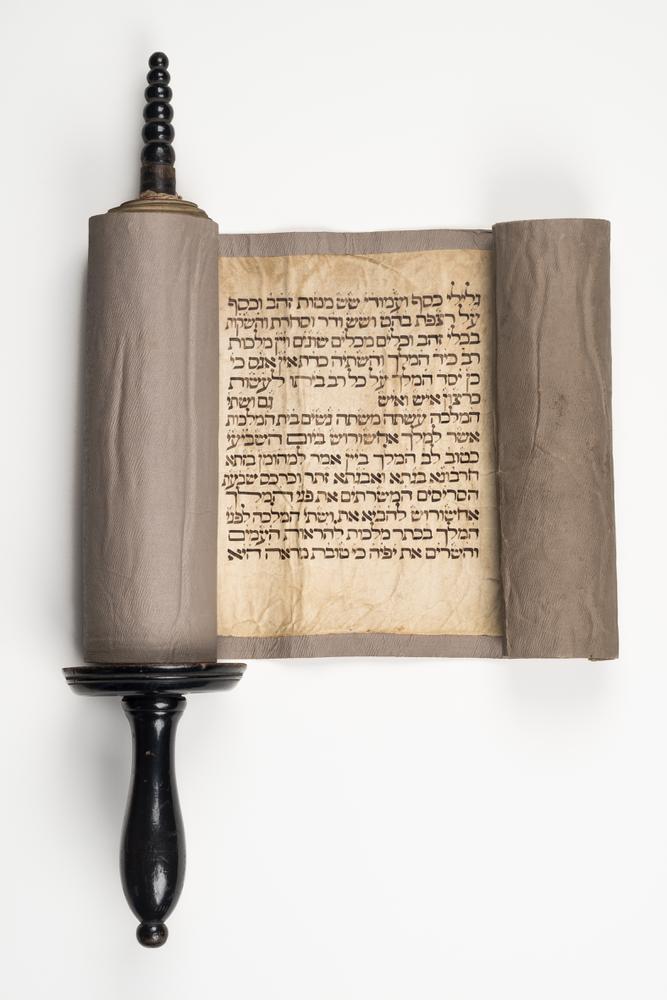 גלילי כסף ועמודי שש מטות זהב וכסף
על רצפת בהט ושש ודר וסחרת והשקות
בכלי זהב וכלים מכלים שונים ויין מלכות
רב כיד המלך והשתיה כדת אין אנס כי
כן יסד המלך על כל רב ביתו לעשות
כרצון איש ואיש גם ושתי
המלכה עשתה משתה נשים בית המלכות
אשר למלך אחשורוש ביום השביעי
כטוב לב המלך ביין אמר למהומן בזתא
חרבונא בגתא ואבגתא זתר וכרכס שבעת
הסריסים המשרתים את פני המלך
אחשורוש להביא את ושתי המלכה לפני
המלך בכתר מלכות להראות העמים
והשרים את יפיה כי טובת מראה היא